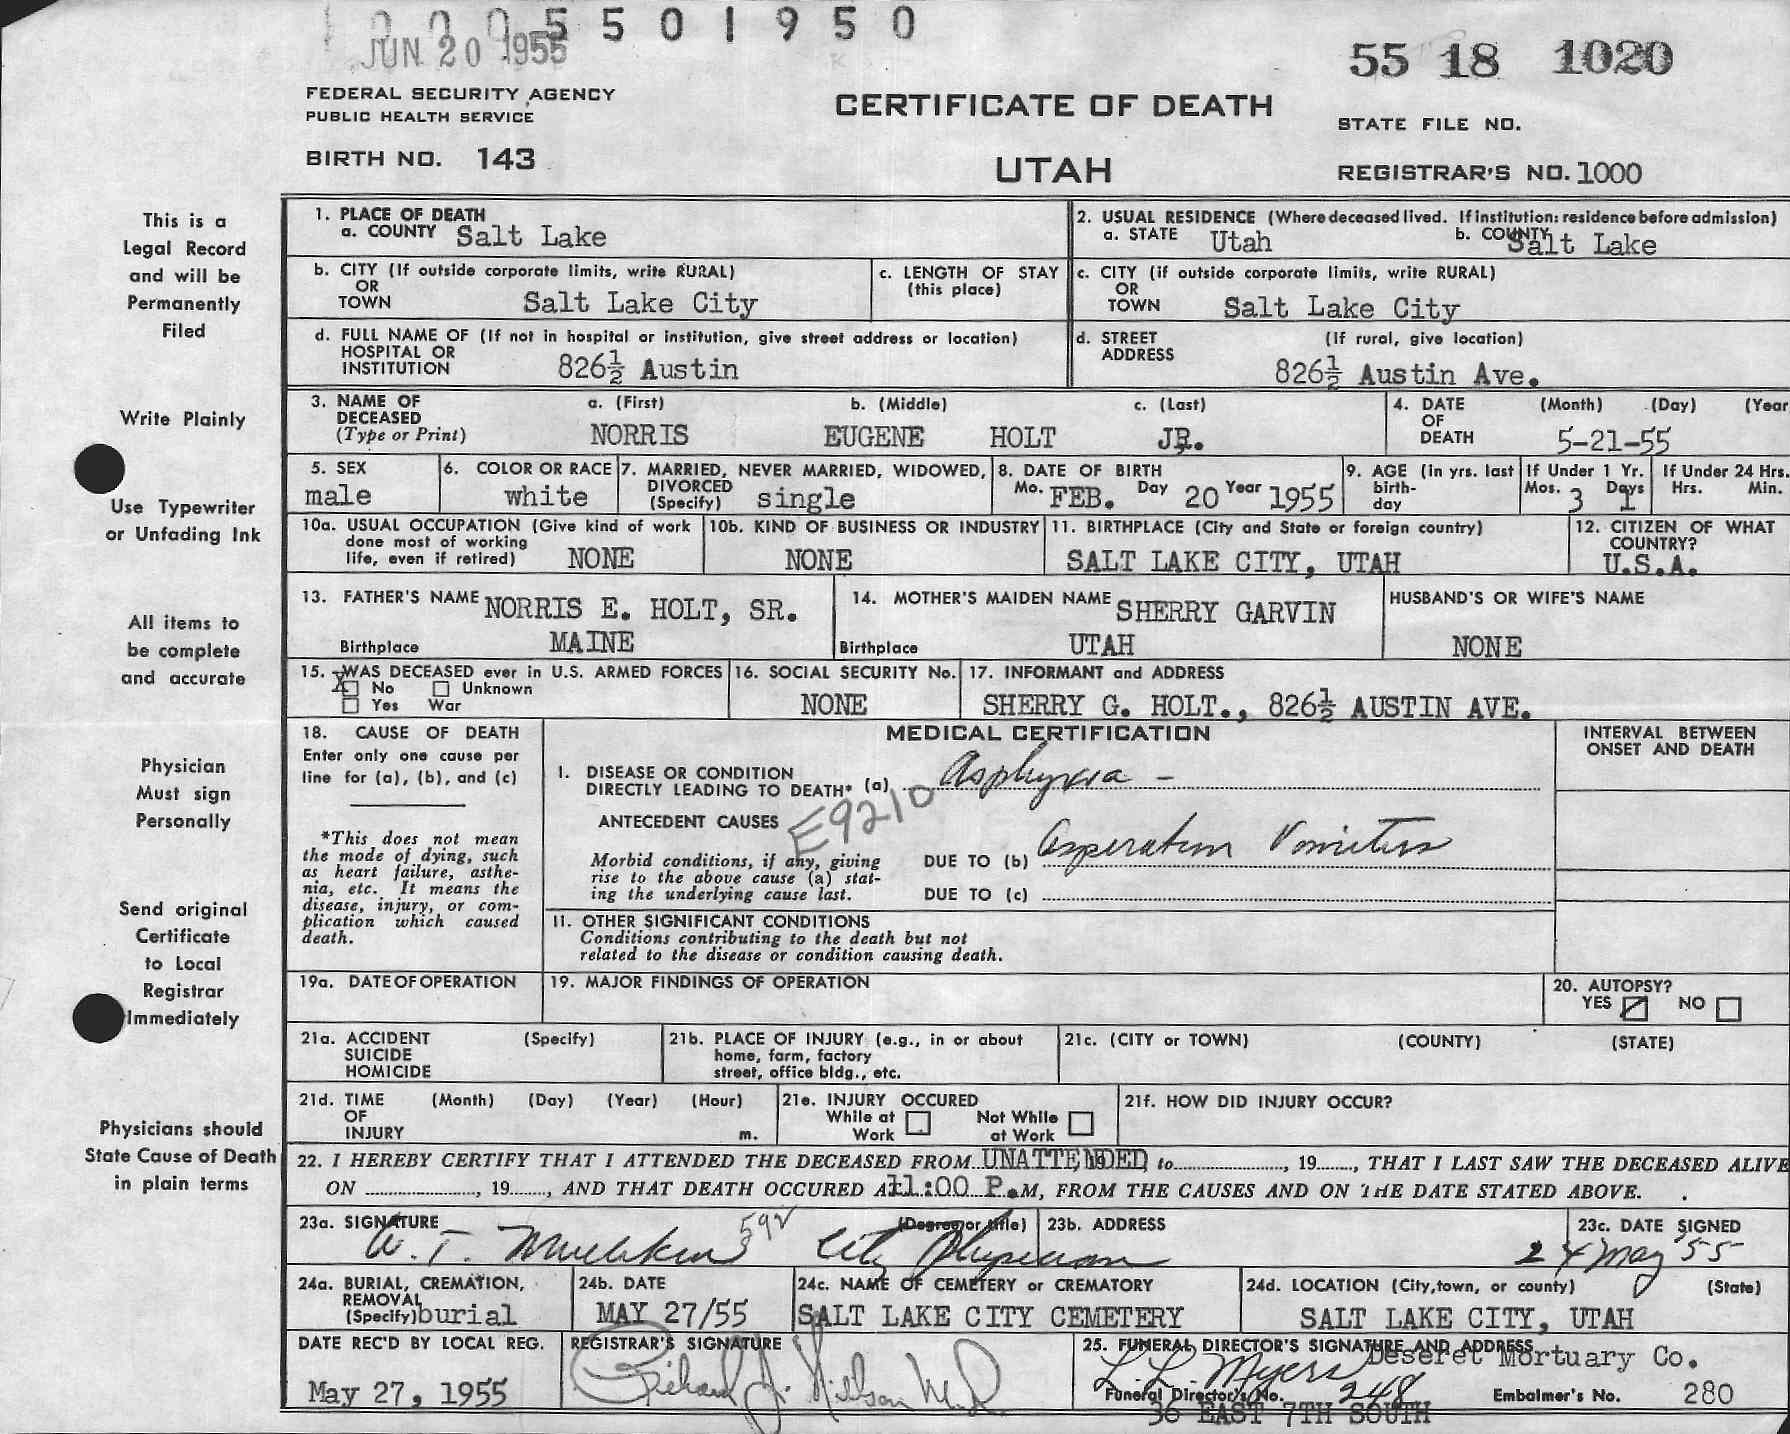 5 5 0 1 9 5 0
JUN 20 1955
55 18 1020
FEDERAL SECURITY AGENCY
PUBLIC HEALTH SERVICE
CERTIFICATE OF DEATH
STATE FILE NO.
BIRTH NO. 143
UTAH
REGISTRAR'S NO. 1000
This is a
Legal Record
and will be
Permanently
Filed
Write Plainly
Use Typewriter
or Unfading Ink
All items to
be complete
and accurate
Physician
Must sign
Personally
Send original
Certificate
to Local
Registrar
Immediately
Physicians should
State Cause of Death
in plain terms
1. PLACE OF DEATH
a. COUNTY Salt Lake
2. USUAL RESIDENCE (Where deceased lived. If institution: residence before admission)
a. STATE Utah b. COUNTY Salt Lake
b. CITY (If outside corporate limits, write RURAL)
OR
TOWN Salt Lake City
c. LENGTH OF STAY
(this place)
c. CITY (if outside corporate limits, write RURAL)
OR
TOWN Salt Lake City
d. FULL NAME OF (If not in hospital or institution, give street address or location)
HOSPITAL OR
INSTITUTION 826½ Austin
d. STREET (If rural, give location)
ADDRESS
826½ Austin Ave.
3. NAME OF a. (First) b. (Middle) c. (Last)
DECEASED
(Type or Print) NORRIS EUGENE HOLT JR.
4. DATE (Month) (Day) (Year
OF
DEATH 5-21-55
5. SEX
male
6. COLOR OR RACE
white
7. MARRIED, NEVER MARRIED, WIDOWED,
DIVORCED
(Specify) single
8. DATE OF BIRTH
Mo. FEB. Day 20 Year 1955
9. AGE (In yrs. last
birth-
day
If Under 1 Yr.
Mos. 3 Days 1
If Under 24 Hrs.
Hrs. Min.
10a. USUAL OCCUPATION (Give kind of work
done most of working
life, even if retired) NONE
10b. KIND OF BUSINESS OR INDUSTRY
NONE
11. BIRTHPLACE (City and State or foreign country)
SALT LAKE CITY, UTAH
12. CITIZEN OF WHAT
COUNTRY?
U.S.A.
13. FATHER'S NAME NORRIS E. HOLT, SR.
Birthplace MAINE
14. MOTHER'S MAIDEN NAME SHERRY GARVIN
Birthplace UTAH
HUSBAND'S OR WIFE'S NAME
NONE
15. WAS DECEASED ever in U.S. ARMED FORCES
X No Unknown
Yes War
16. SOCIAL SECURITY No.
NONE
17. INFORMANT and ADDRESS
SHERRY G. HOLT., 826½ AUSTIN AVE.
18. CAUSE OF DEATH
Enter only one cause per
line for (a), (b), and (c)
*This does not mean
the mode of dying, such
as heart failure, asthe-
nia, etc. It means the
disease, injury, or com-
plication which caused
death.
MEDICAL CERTIFICATION
INTERVAL BETWEEN
ONSET AND DEATH
I. DISEASE OR CONDITION
DIRECTLY LEADING TO DEATH* (a) Asphyxia -
ANTECEDENT CAUSES E9210
Morbid conditions, if any, giving
rise to the above cause (a) stat-
ing the underlying cause last.
DUE TO (b) Asperation Vomitus
DUE TO (c)
11. OTHER SIGNIFICANT CONDITIONS
Conditions contributing to the death but not
related to the disease or condition causing death.
19a. DATE OF OPERATION
19. MAJOR FINDINGS OF OPERATION
20. AUTOPSY?
YES NO
21a. ACCIDENT (Specify)
SUICIDE
HOMICIDE
21b. PLACE OF INJURY (e.g., in or about
home, farm, factory
street, office bldg., etc.
21c. (CITY or TOWN) (COUNTY) (STATE)
21d. TIME (Month) (Day) (Year) (Hour)
OF
INJURY m.
21e. INJURY OCCURED
While at Not While
Work at Work
21f. HOW DID INJURY OCCUR?
22. I HEREBY CERTIFY THAT I ATTENDED THE DECEASED FROM UNATTENDED to , 19 , THAT I LAST SAW THE DECEASED ALIVE
ON , 19 , AND THAT DEATH OCCURED AT 11:00 P.M, FROM THE CAUSES AND ON THE DATE STATED ABOVE.
23a. SIGNATURE (Degree or title)
W. T. City Physician
592
23b. ADDRESS
23c. DATE SIGNED
24 May 55
24a. BURIAL, CREMATION,
REMOVAL
(Specify) burial
24b. DATE
MAY 27/55
24c. NAME OF CEMETERY or CREMATORY
SALT LAKE CITY CEMETERY
24d. LOCATION (City, town, or county) (State)
SALT LAKE CITY, UTAH
DATE REC'D BY LOCAL REG.
May 27, 1955
REGISTRAR'S SIGNATURE
Richard J. Nillson M.D.
25. FUNERAL DIRECTOR'S SIGNATURE AND ADDRESS
L. L. Myers Deseret Mortuary Co.
Funeral Director's No. 248 Embalmer's No. 280
36 EAST 7TH SOUTH